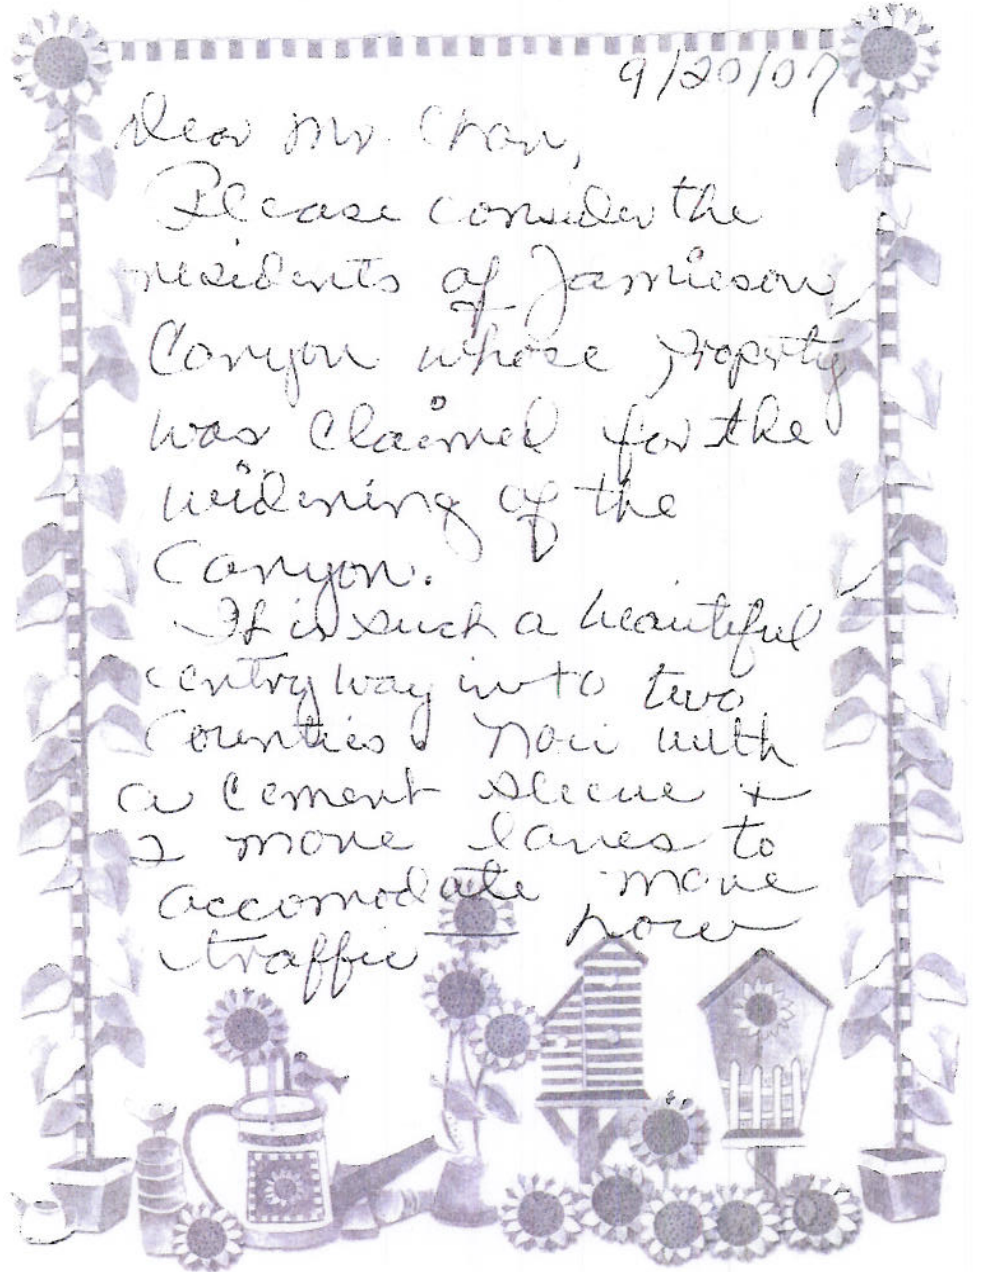 9/20/07
Dear Mr. Chan,
Please consider the
residents of Jamieson
Canyon whose property
was claimed for the
widening of the
Canyon.
It is such a beautiful
entry way into two
Counties. Now with
a cement sleeve +
2 more lanes to
accomodate more
traffic — how